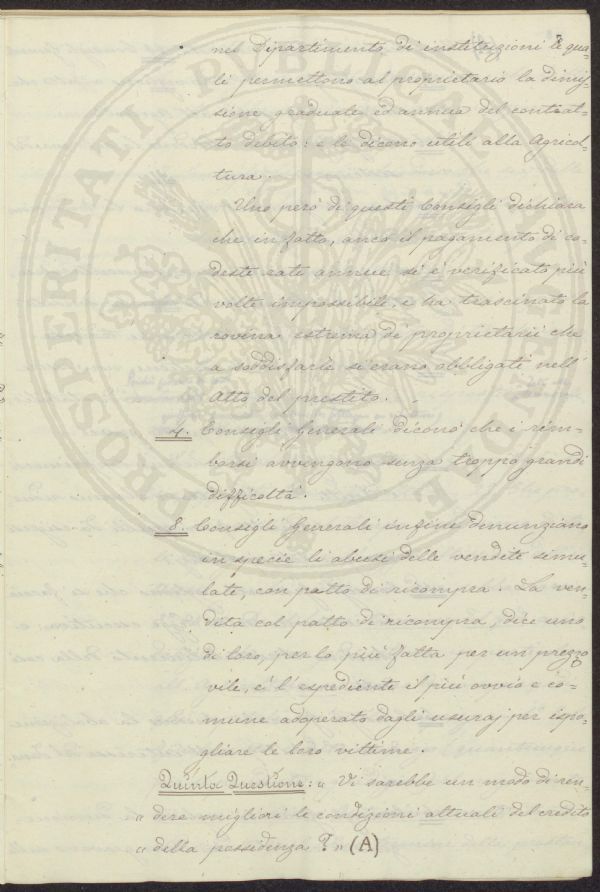 nel Dipartimento di instituzioni le qua-
li permettono al proprietario la dimis-
sione graduale ed annua del contrat-
to debito: e le dicono utili alla Agricol-
tura.
Uno però di questi Consigli dichiara
che in fatto, anco il pagamento di co-
deste rate annue si è verificato più
volte impossibile, e ha trascinato la
rovina estrema di proprietarii che
a soddisfarle si erano obbligati nell'
Atto del prestito.
4. Consigli Generali dicono che i rim-
borsi avvengono senza troppo grandi
difficoltà.
8. Consigli Generali infine denunziano
in specie li abusi delle vendite simu-
late, con patto di ricompra. La ven-
dita col patto di ricompra, dice uno
di loro, per lo più fatta per un prezzo
vile, è l'espediente il più ovvio e co-
mune adoperato dagli usuraj per ispo-
gliare le loro vittime.
Quinta Questione: « Vi sarebbe un modo di ren-
« dere migliori le condizioni attuali del credito
« della possidenza?» (A)
PROSPERITATI PUBLICAE